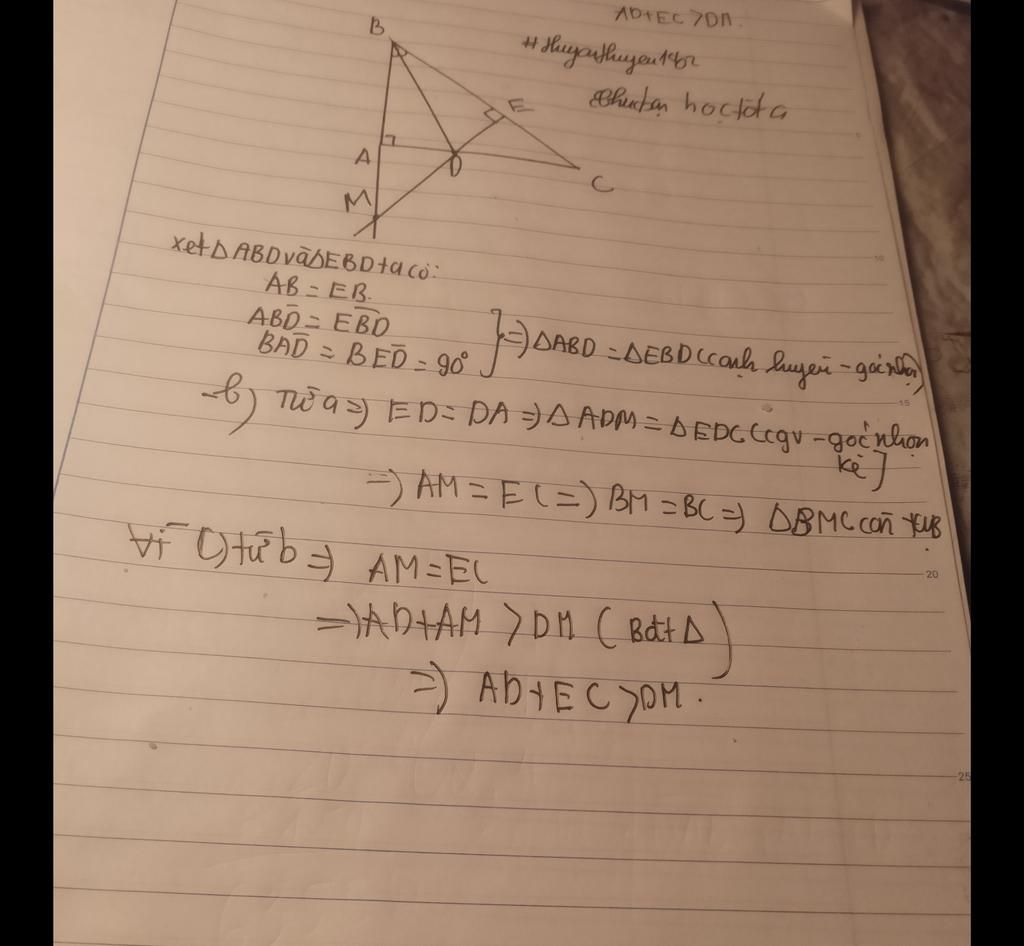 AD+EC >DM.
B
E
A
D
C
M
xét Δ ABD và Δ EBD ta có:
AB = EB.
ABD = EBD
BAD = BED = 90°
} => ΔABD = ΔEBD (cạnh huyền - góc nhọn)
b) Từ a => ED = DA => Δ ADM = Δ EDC (cgv - góc nhọn
kề]
=) AM = EC =) BM = BC =) ΔBMC cân
Vì C) từ b =) AM = EC
=) AD+AM > DM ( Bđt Δ )
=) AD + EC > DM .
15
20
25